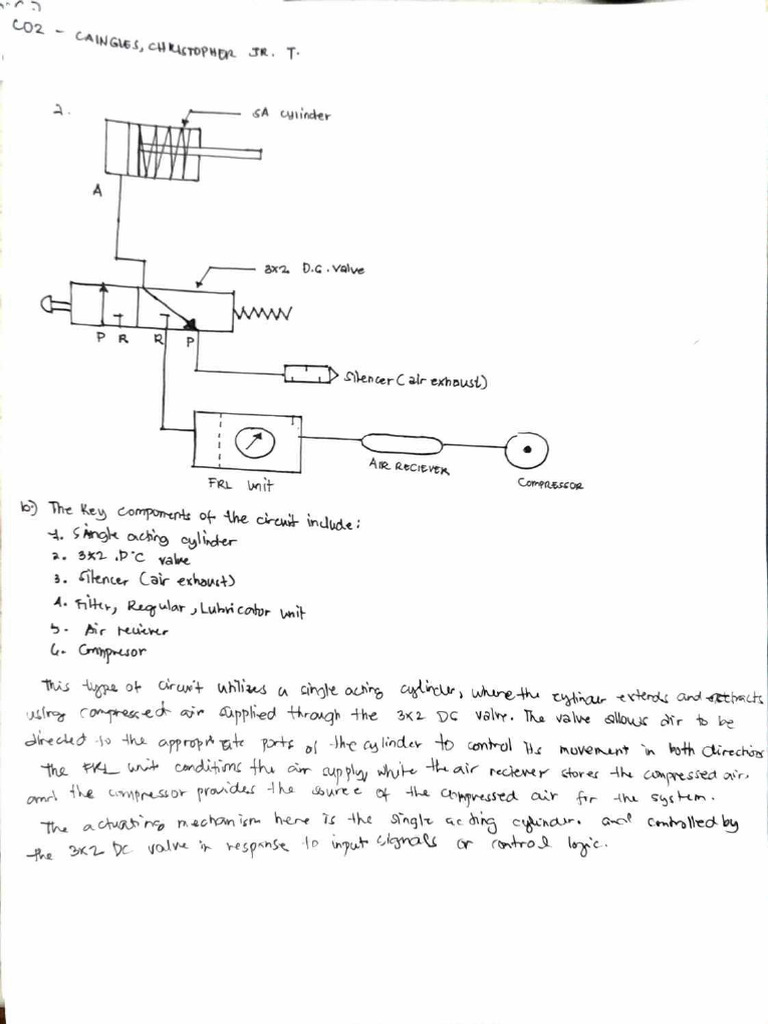 CO2 - CAINGLES, CHRISTOPHER JR. T.
2.
SA cylinder
A
3x2 D.C. valve
P R R P
Silencer (air exhaust)
FRL unit
AIR RECIEVER
COMPRESSOR
b.) The key components of the circuit include:
1. Single acting cylinder
2. 3x2 .D°C valve
3. Silencer (air exhaust)
4. Filter, Regular, Lubricator unit
5. Air reciever
6. Compresor
This type of circuit utilizes a single acting cylinder, where the cylinder extends and retracts
using compressed air supplied through the 3x2 DC valve. The valve allows air to be
directed to the appropriate ports of the cylinder to control its movement in both directions
The FRL unit conditions the air supply, while the air reciever stores the compressed air.
and the compressor provides the source of the compressed air for the system.
The actuating mechanism here is the single acting cylinder. and controlled by
the 3x2 DC valve in response to input signals or control logic.